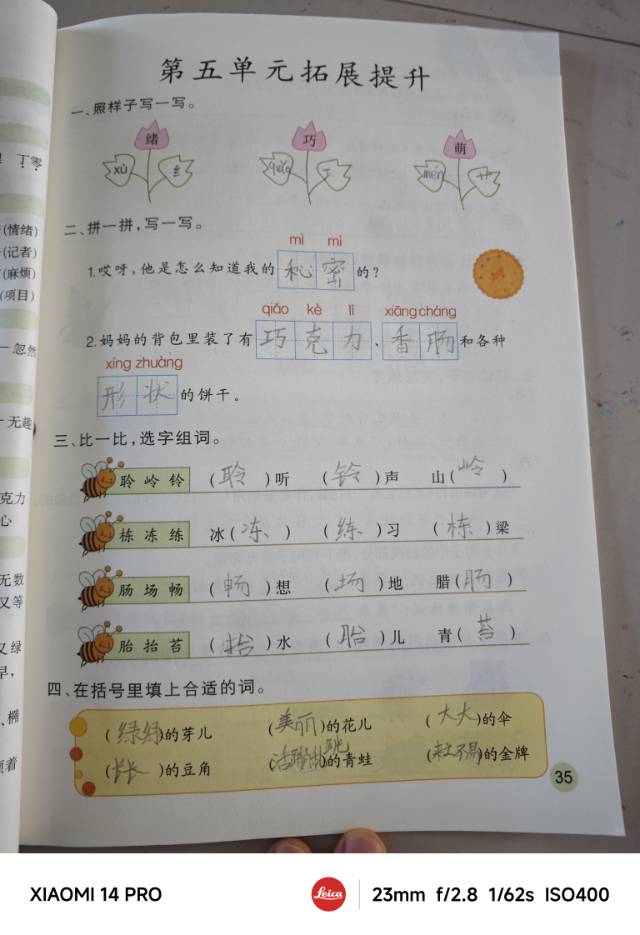 第五单元拓展提升
一、照样子写一写。
绪 巧 萌
xù 纟 qiǎo 工 ménɡ 艹
二、拼一拼,写一写。
mì mì
1.哎呀,他是怎么知道我的秘密的?
qiǎo kè lì xiāng cháng
2.妈妈的背包里装了有巧克力、香肠和各种
xíng zhuàng
形状的饼干。
三、比一比,选字组词。
聆 岭 铃 (聆)听 (铃)声 山(岭)
栋 冻 练 冰(冻) (练)习 (栋)梁
肠 场 畅 (畅)想 (场)地 腊(肠)
胎 抬 苔 (抬)水 (胎)儿 青(苔)
四、在括号里填上合适的词。
(绿绿)的芽儿 (美丽)的花儿 (大大)的伞
(长长)的豆角 (活蹦乱跳)的青蛙 ()的金牌
35
丁零
(情绪)
(记者)
(麻烦)
(项目)
忽然
无趣
克力
心
无数
又等
又绿
早,
、椭
着
XIAOMI 14 PRO
Leica
23mm f/2.8 1/62s ISO400